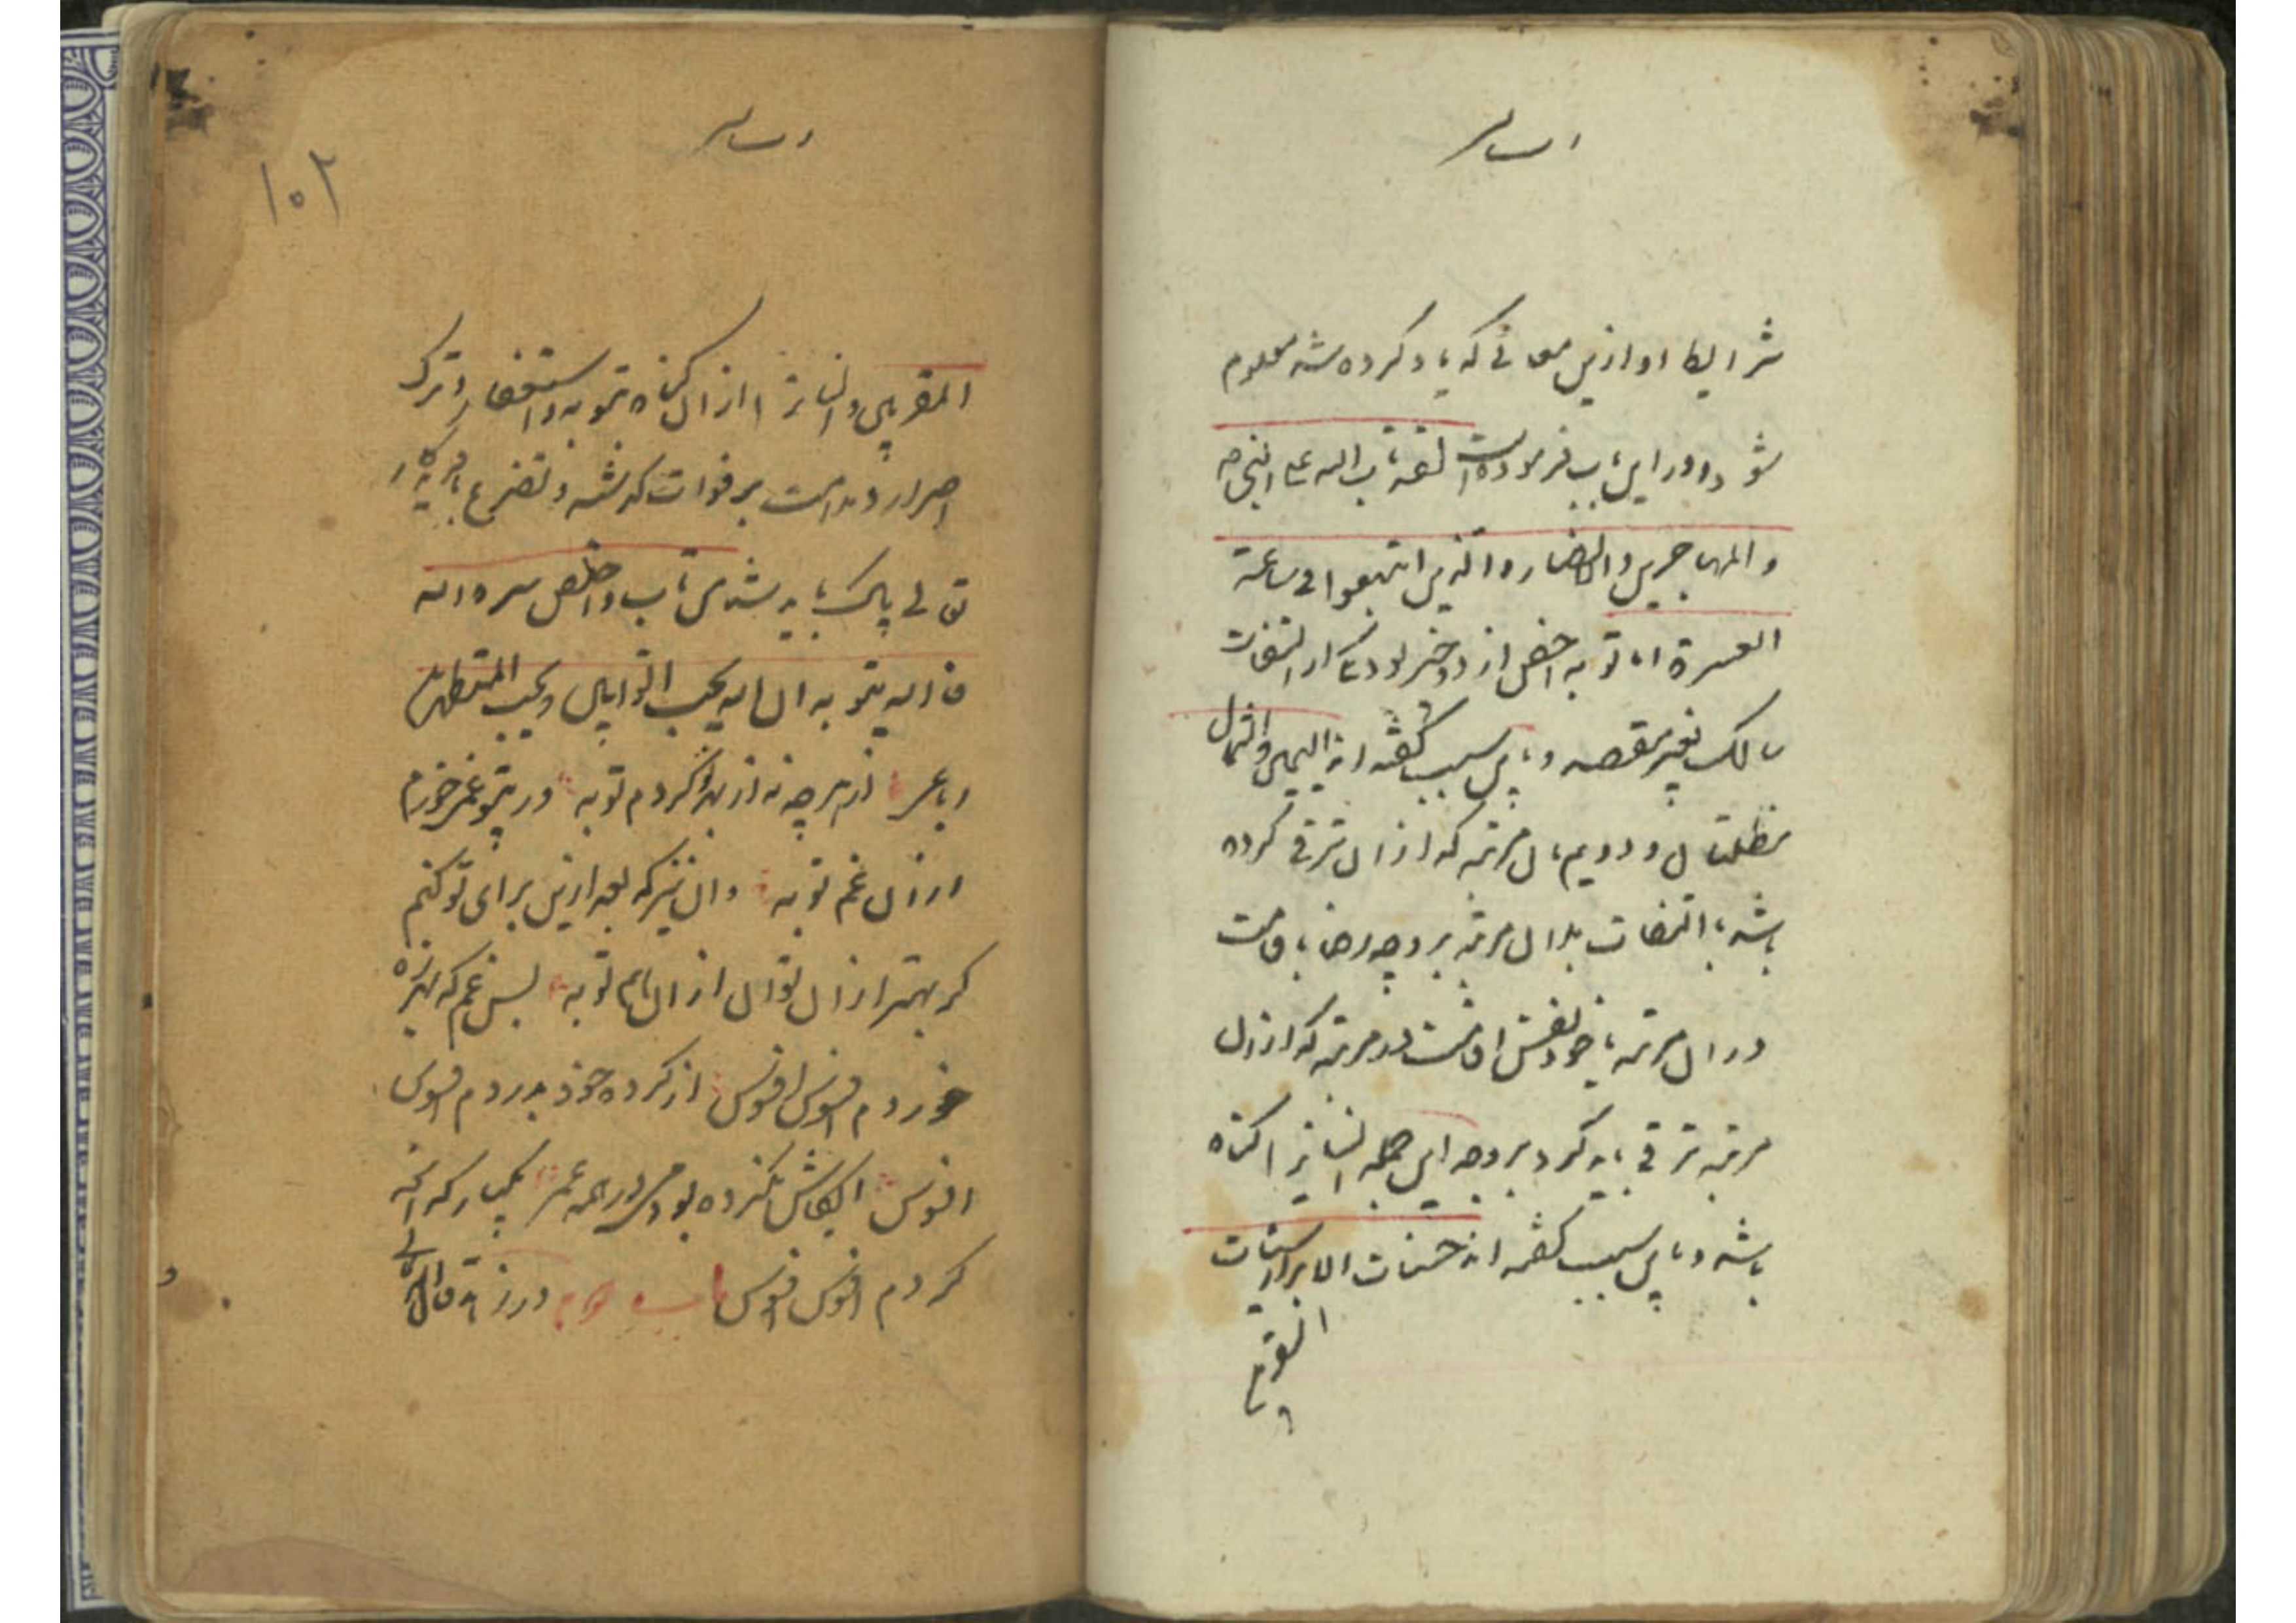 شرایط او ازین معانی که یاد کرده شد معلوم
شود و درین باب فرموده است لقد تاب الله علی النبی
و المهاجرین و الانصار و الذین اتبعوا فی ساعة
العسرة اما توبه اخص از دو چیز بود یکی از التفات
سالک بغیر مقصد و باین سبب گفته اند الیمین و الشمال
مظلتان و دویم بآن مرتبه که ازان ترقی کرده
باشد بالتفات بدان مرتبه بر وجه رضا باقامت
دران مرتبه با خود نفس اقامت در مرتبه که ازان
مرتبه ترقی باید کرد بر وجه این جمله ایشانرا گناه
باشد و باین سبب گفته اند حسنات الابرار سیئات
المقربین و ایشانرا ازان گناه بتوبه و استغفار و ترک
۱۰۲
اصرار و ندامت بر فوات گذشته و تضرع بآفریدگار
تعالی پاک باید شد من تاب و اخلص سره لله
فالله یتوبه ان الله یحب التوابین و یحب المتطهرین
رباعی از هرچه نه از بهر تو کردم توبه ور بیتو غمی خوردم
ازان غم توبه وان نیز که بعد ازین برای تو کنم
گر بهتر ازان توان ازان هم توبه بس غم که بهرزه
خوردم افسوس افسوس از کرده خود بدردم افسوس
افسوس ایکاش نکرده بودمی در همه عمر یکبار که آنچه
کردم افسوس افسوس باب دوم در